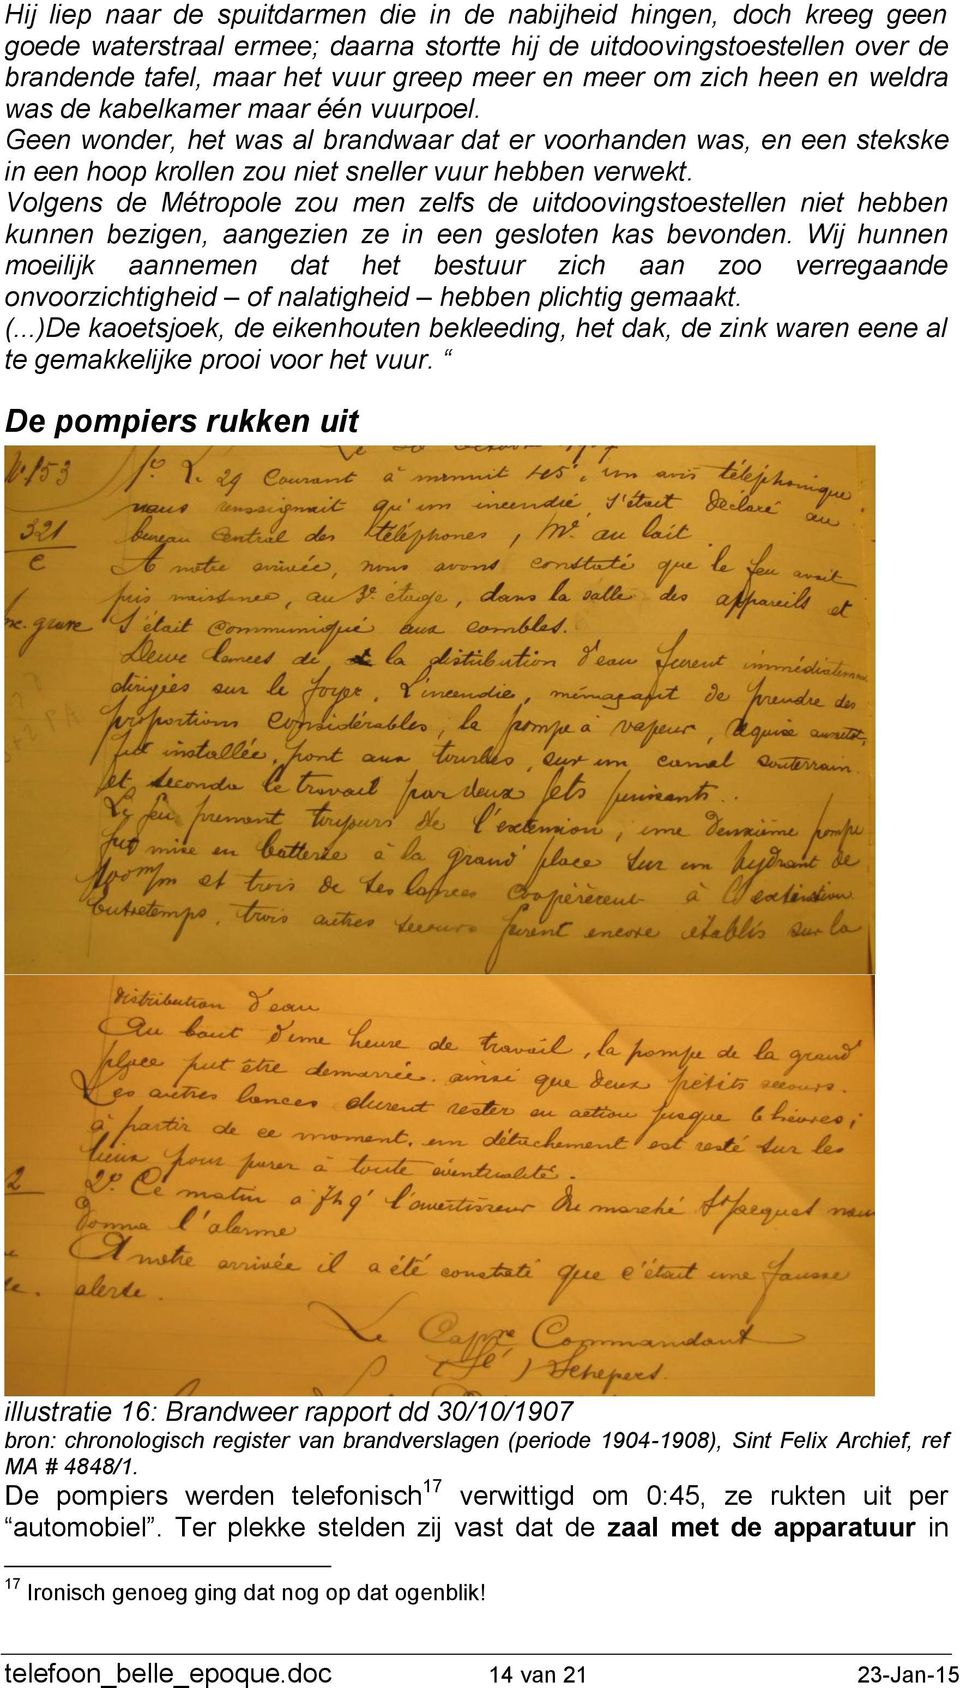 Hij liep naar de spuitdarmen die in de nabijheid hingen, doch kreeg geen
goede waterstraal ermee; daarna stortte hij de uitdoovingstoestellen over de
brandende tafel, maar het vuur greep meer en meer om zich heen en weldra
was de kabelkamer maar één vuurpoel.
Geen wonder, het was al brandwaar dat er voorhanden was, en een stekske
in een hoop krollen zou niet sneller vuur hebben verwekt.
Volgens de Métropole zou men zelfs de uitdoovingstoestellen niet hebben
kunnen bezigen, aangezien ze in een gesloten kas bevonden. Wij hunnen
moeilijk aannemen dat het bestuur zich aan zoo verregaande
onvoorzichtigheid – of nalatigheid – hebben plichtig gemaakt.
(...)De kaoetsjoek, de eikenhouten bekleeding, het dak, de zink waren eene al
te gemakkelijke prooi voor het vuur. “
De pompiers rukken uit
N°. 153 1° Le 29 Courant à minuit 45', un avis téléphonique
nous renseignait qu'un incendie, s'était déclaré au
321 bureau Central des téléphones, M. au lait.
e A notre arrivée, nous avons constaté que le feu avait
pris naissance, au 3e étage, dans la salle des appareils et
grave s'était communiqué aux combles.
Deux lances de la distribution d'eau furent immédiatem
dirigées sur le foyer. L'incendie, menaçant de prendre des
proportions considérables, la pompe à vapeur, requise
fut installée, pont aux tourbes, sur un canal souterrain.
et seconda le travail par deux jets puissants.
Le feu prenant toujours de l'extension, une deuxième pompe
fut mise en batterie à la grand' place sur un hydrant de
100 m/m et trois de ses lances coopérèrent à l'extinction
Entretemps, trois autres secours furent encore établis sur la
distribution d'eau
Au bout d'une heure de travail, la pompe de la grand'
place put être démarrée, ainsi que deux petits secours.
Les autres lances durent rester en action jusque 6 heures;
à partir de ce moment, un détachement est resté sur les
lieux pour parer à toute éventualité.
2 2° Ce matin à 7h9' l'avertisseur du marché St Jacques nous
donna l'alarme
A notre arrivée il a été constaté que c'était une fausse
alerte.
Le Capne Commandant
(sé) Schepers
illustratie 16: Brandweer rapport dd 30/10/1907
bron: chronologisch register van brandverslagen (periode 1904-1908), Sint Felix Archief, ref
MA # 4848/1.
De pompiers werden telefonisch17 verwittigd om 0:45, ze rukten uit per
“automobiel”. Ter plekke stelden zij vast dat de zaal met de apparatuur in
17 Ironisch genoeg ging dat nog op dat ogenblik!
telefoon_belle_epoque.doc 14 van 21 23-Jan-15